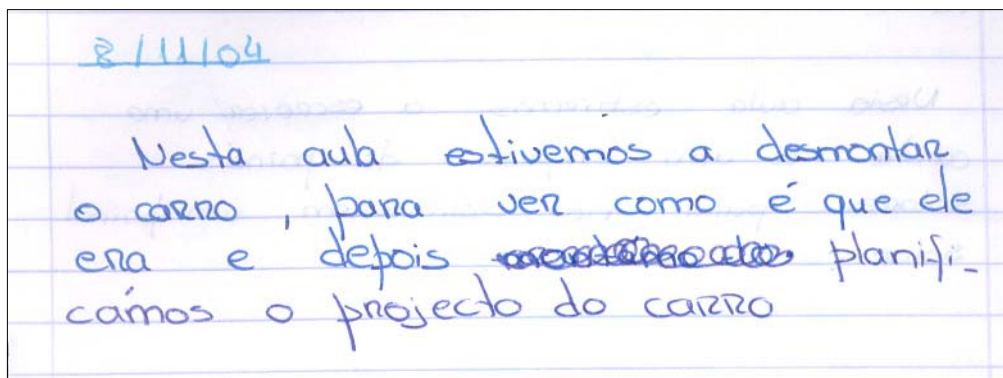 8/11/04
Nesta aula estivemos a desmontar
o carro, para ver como é que ele
era e depois planifi-
cámos o projecto do carro